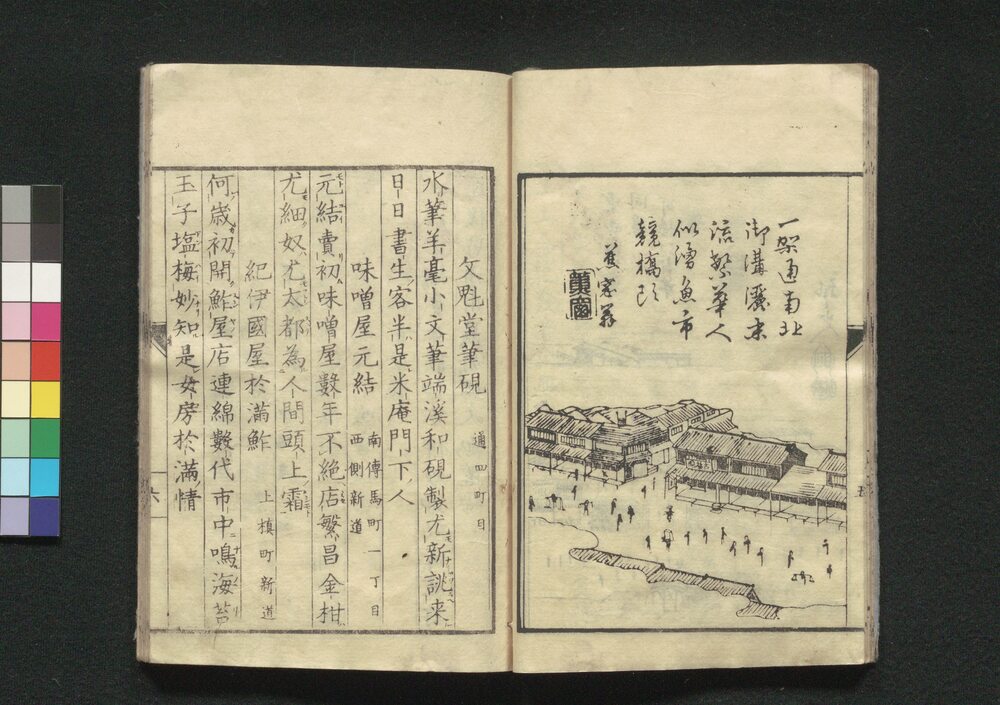 一架通南北
御溝瀉末
流繁華人
似湧魚市
競橋頭
五
文魁堂筆硯 通四町目
水筆羊毫小文筆端溪和硯製尤新誂来
日日書生客半是米庵門下人
味噌屋元結 南傳馬町一丁目西側新道
元結賣初味噌屋數年不絶店繁昌金柑
尤細奴尤太都為人間頭上霜
紀伊國屋於滿鮓 上槙町新道
何歳初開鮓屋店連綿數代市中鳴海苔
玉子塩梅妙知是女房於滿情
六